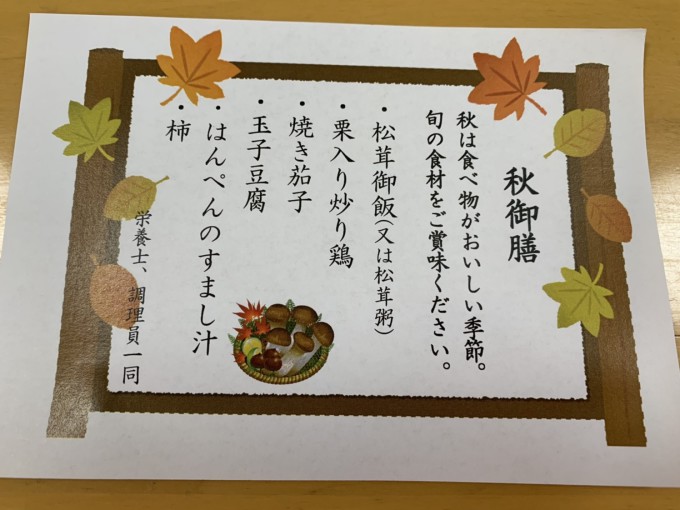 秋御膳
秋は食べ物がおいしい季節。
旬の食材をご賞味ください。
・松茸御飯(又は松茸粥)
・栗入り炒り鶏
・焼き茄子
・玉子豆腐
・はんぺんのすまし汁
・柿
栄養士、調理員一同